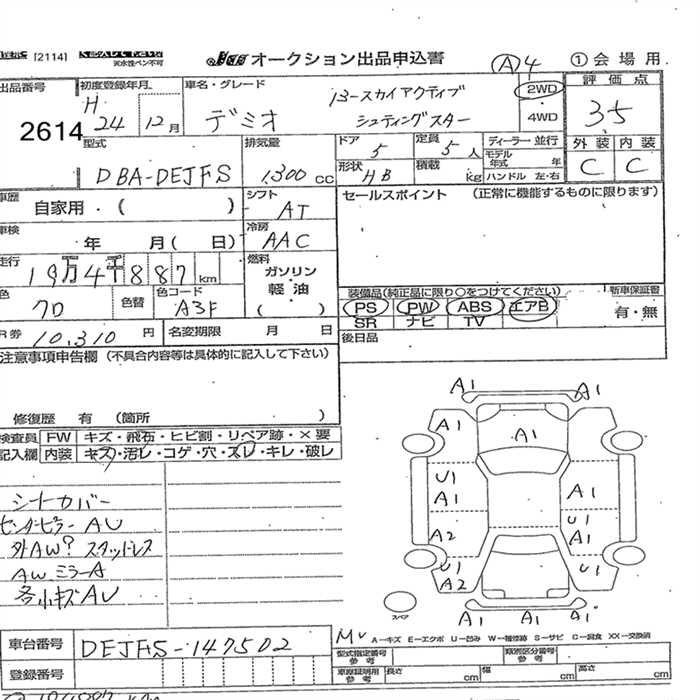 [2114]
天水性ペン不可
オークション出品申込書
A 4
① 会場用
出品番号
2614
初度登録年月
H 24 12月
車名・グレード
デミオ
13-スカイアクティブ
シューティングスター
2WD
4WD
評価点
3.5
外装 内装
C C
型式
DBA-DEJFS
排気量
1300 cc
ドア
5
定員
5人
形状
HB
積載
kg
ディーラー 並行
モデル年式 年
ハンドル 左・右
車歴
自家用・( )
シフト
AT
セールスポイント (正常に機能するものに限ります)
車検
年 月( 日)
冷房
AAC
走行
19万4千887km
燃料
ガソリン
軽油
( )
色
色替
色コード
A3F
装備品(純正品に限り○をつけてください)
PS PW ABS エアB
SR ナビ TV
新車保証書
有・無
R券
10,310円
名変期限 月 日
後日品
注意事項申告欄 (不具合内容等は具体的に記入して下さい)
修復歴 有 (箇所 )
検査員
記入欄
FW キズ・飛石・ヒビ割・リペア跡・×要
内装 キズ・汚レ・コゲ・穴・スレ・キレ・破レ
シートカバー
センターピラーAU
外AW? スタッドレス
AW ミラーA
各小キズAU
A1 A1
A1 A1
U1
A1 A1
A2 U1
A1
U1
A2 U1
A1 A1 A1
スペア
車台番号
DEJFS-147502
登録番号
A-キズ E-エクボ U-凹み W-補修跡 S-サビ C-腐食 XX-交換済
型式指定番号
参考
類別区分番号
参考
車庫証明用
参考
長さ cm
幅 cm
高さ cm